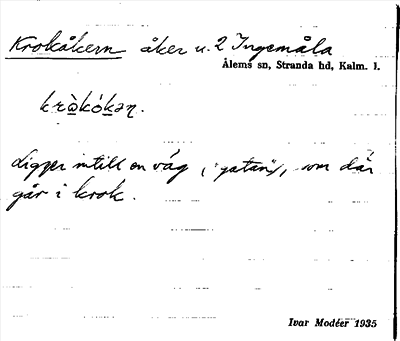 Krokåkern åker u. 2 Ingemåla
Ålems sn, Stranda hd, Kalm. l.
krò̲kók̲ən.
Ligger intill en väg ("gatan"), som där
går i krok.
Ivar Modéer 1935